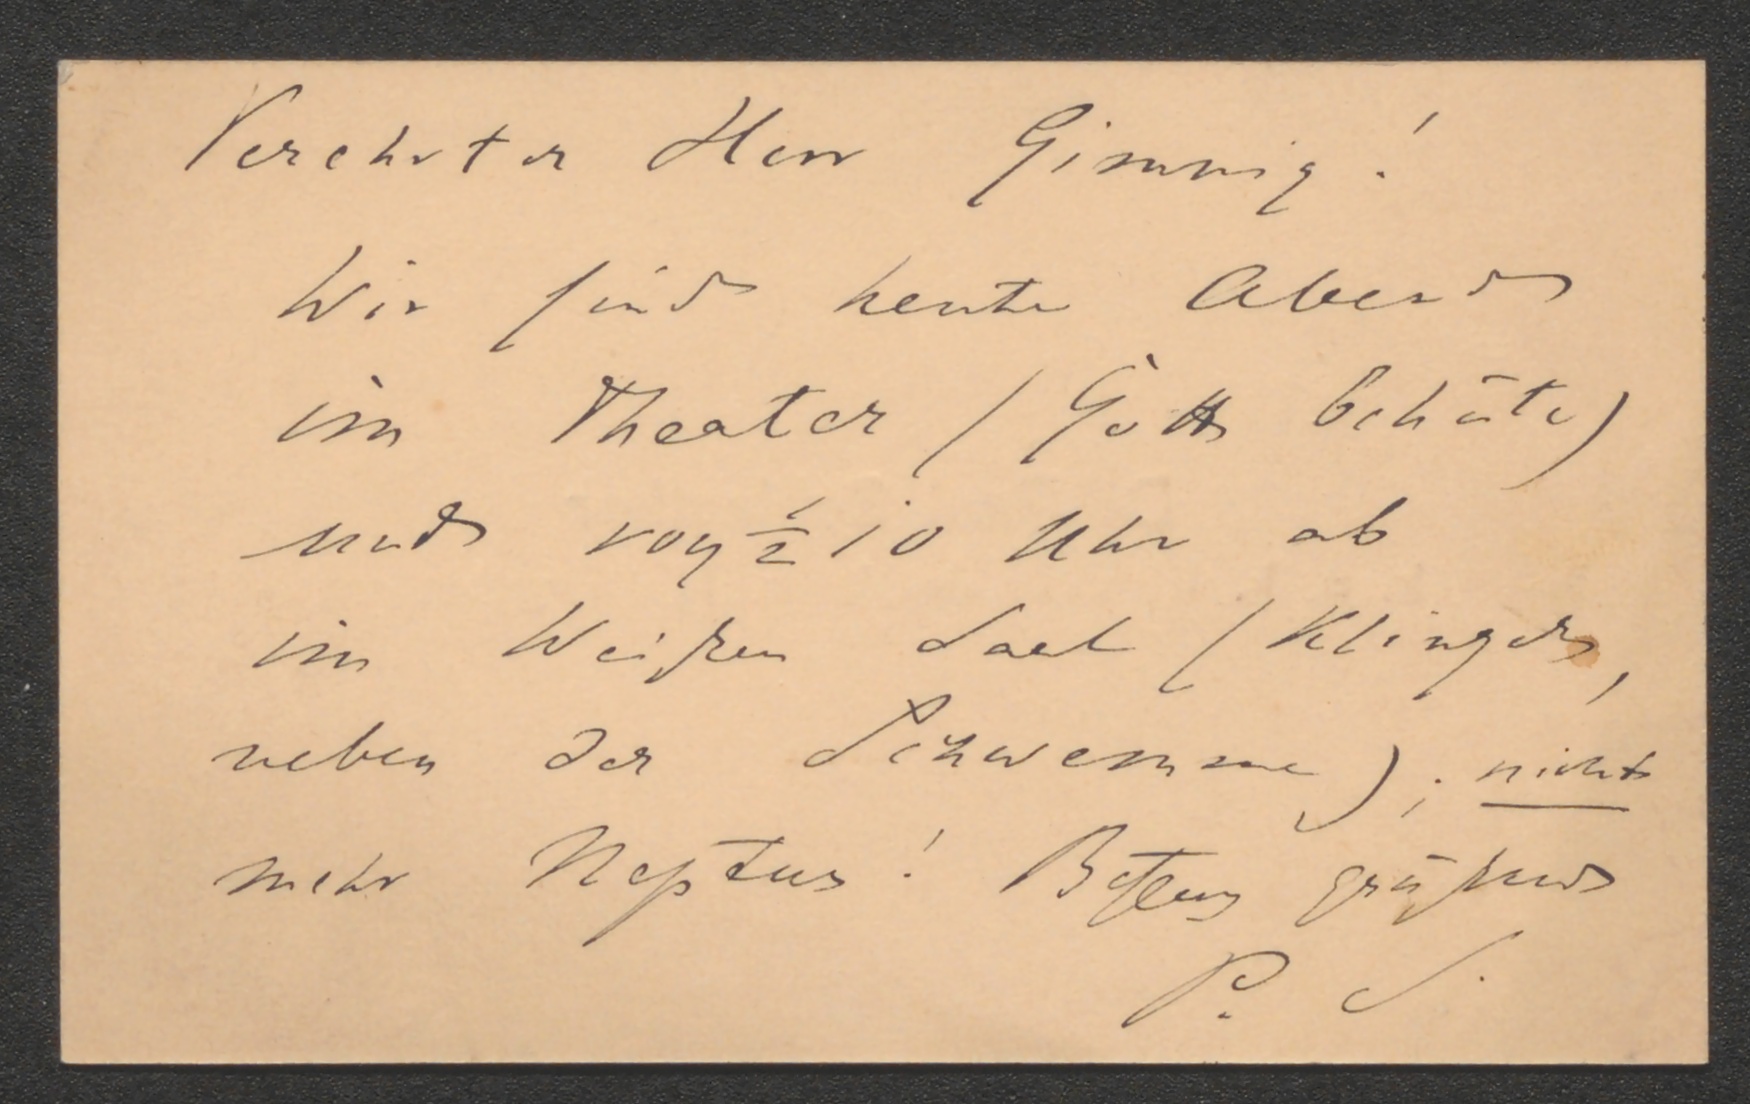 Verehrter Herr Gimnig!
Wir sind heute Abend
im Theater (Gott behüte)
und von ½ 10 Uhr ab
im Weißen Saal (Klinger,
neben der Schwemme); nicht
mehr Neptun! Bestens grüßend
P. S.